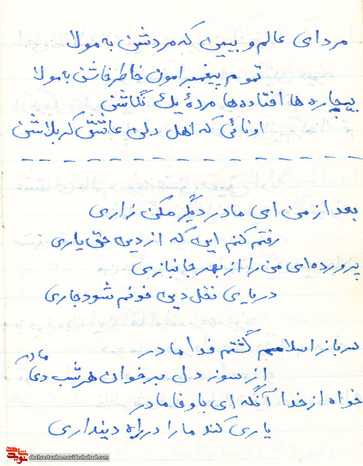 مردای عالم و ببین که مردشن به مولا
تموم پیغمبرامون خاطرخاشن به مولا
بیچاره ها افتاده ها مرده یک نگاشن
اونائی که اهل دلن عاشق کربلاشن
بعد از من ای مادر دیگر مکن زاری
رفتم کنم این که از دین حق یاری
پرورده ای من را از بهر جانبازی
در پای نخل دین خونم شود جاری
سرباز اسلامم گشتم فدا مادر
از سوز دل برخوان هر شب دعا مادر
خواه از خدا آنگه ای با وفا مادر
یاری کند ما را در راه دینداری
shahreetanha.navideshahed.com